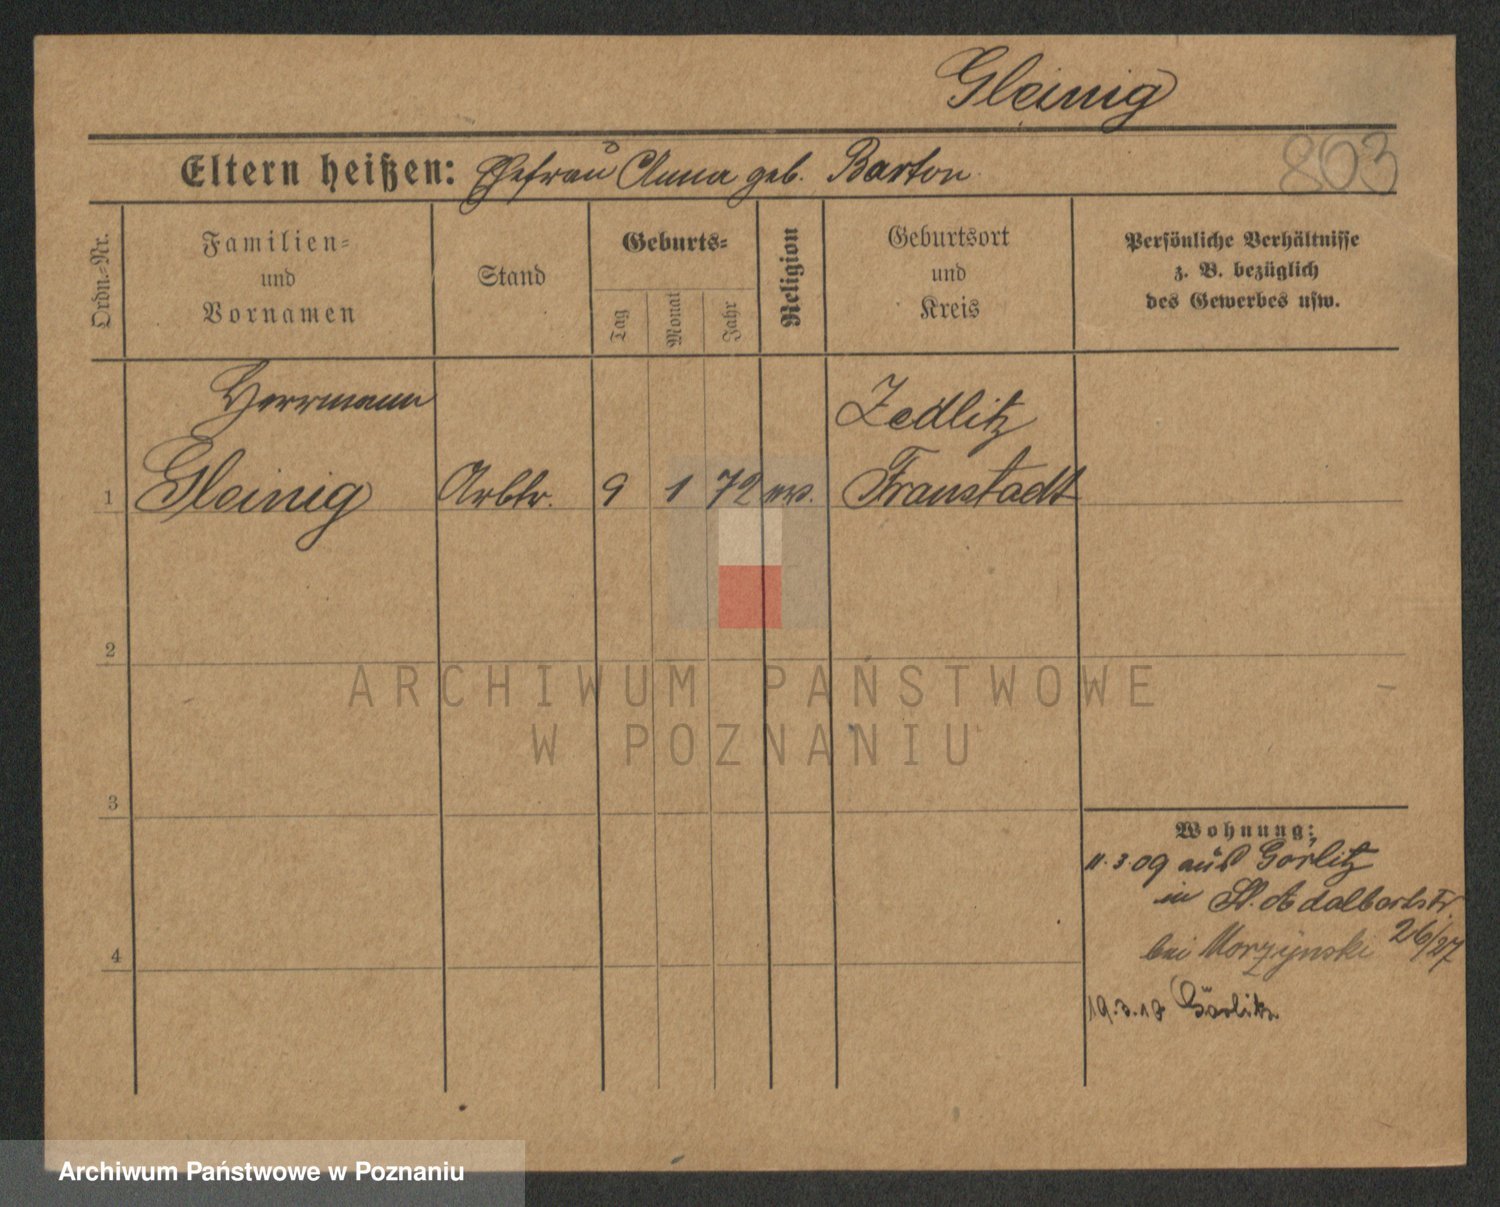 Gleinig
803
Eltern heißen: Ehefrau Anna geb. Barton
Ordn.=Nr.
Familien=
und
Vornamen
Stand
Geburts=
Tag
Monat
Jahr
Religion
Geburtsort
und
Kreis
Persönliche Verhältnisse
z. B. bezüglich
des Gewerbes usw.
Herrmann
Zedlitz
1 Gleinig Arbtr. 9 1 72 ev. Fraustadt
2
3
4
Wohnung:
11.3.09 aus Görlitz
in St. Adalbertstr.
bei Morzynski 26/27
19.3. Görlitz
ARCHIWUM PAŃSTWOWE
W POZNANIU
Archiwum Państwowe w Poznaniu